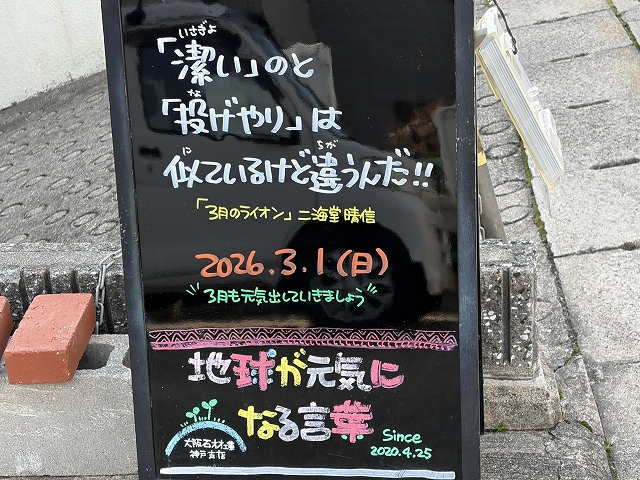 「潔い」のと
いさぎよ
「投げやり」は
な
似ているけど違うんだ!!
に ちが
「3月のライオン」二海堂晴信
2026.3.1(日)
3月も元気出していきましょう
地球が元気に
なる言葉
Since
2020.4.25